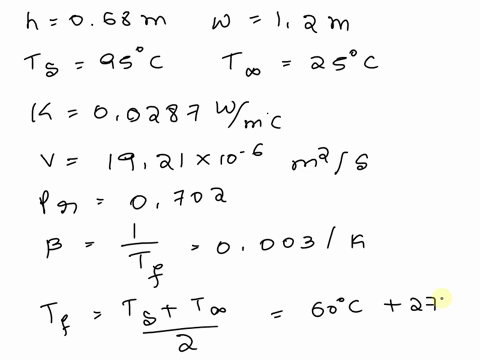 h = 0.68 m   w = 1.2 m
Ts = 95°C   T∞ = 25°C
K = 0.0287 W/m°C
ν = 19.21 × 10^-6 m²/s
Pr = 0.702
β = 1/Tf = 0.003/K
Tf = (Ts + T∞)/2 = 60°C + 27